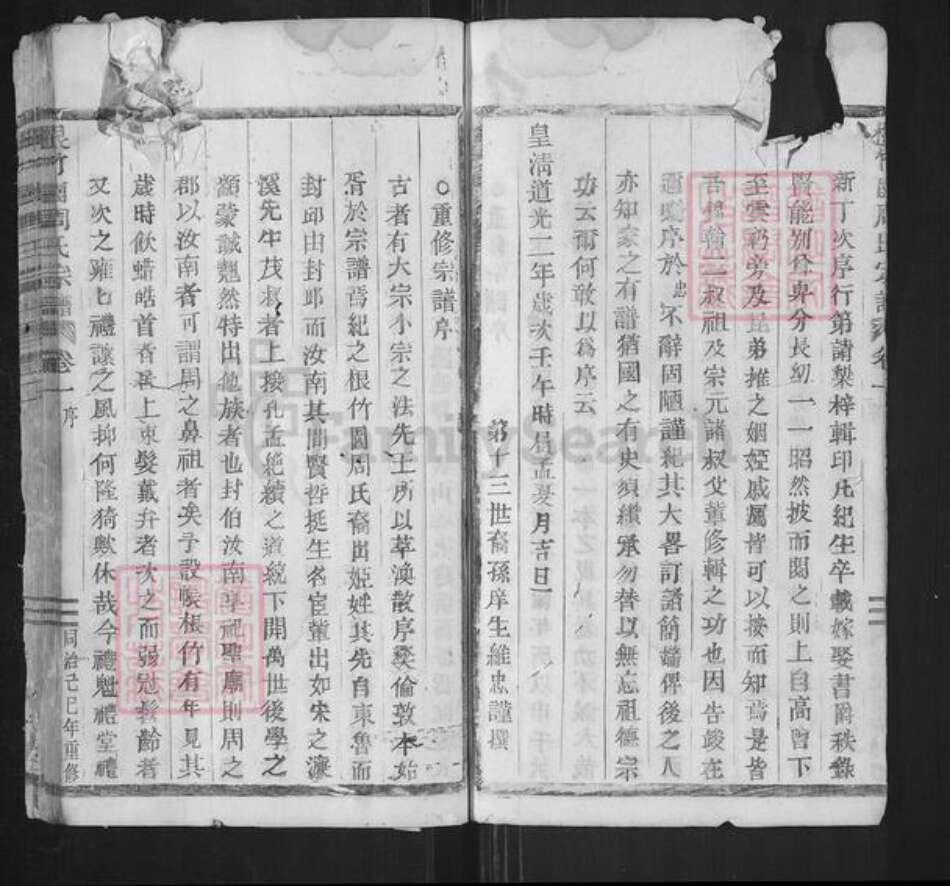 新丁次序行第請棃梓輯印凡紀生卒載嫁娶書爵秩錄
賢能別尊卑分長幼一一昭然披而閱之則上自高曾下
至雲礽旁及昆弟推之姻婭戚屬皆可以按而知焉是皆
吾 翰一叔祖及宗元諸叔父輩修輯之功也因告竣在
邇 序於忠不辭固陋謹紀其大畧訂諸簡端俾後之人
亦知家之有譜猶國之有史須纘承勿替以無忘祖德宗
功云爾何敢以為序云
皇清道光二年歲次壬午時昌孟夏月吉日
第十三世裔孫庠生維忠謹撰
○重修宗譜序
古者有大宗小宗之法先王所以萃渙散序彝倫敦本始
胥於宗譜焉紀之根竹園周氏裔出姬姓其先自東魯而
封邱由封邱而汝南其間賢哲挺生名宦輩出如宋之濂
溪先生茂叔者上接孔孟絶續之道統下開萬世後學之
顓蒙誠翹然特出他族者也封伯汝南專祀聖廟則周之
郡以汝南者可謂周之鼻祖者矣予設帳根竹有年見其
歲時飲蜡皓首耆長上束髮戴弁者次之而弱冠髫齡者
又次之雍七禮讓之風抑何隆猗歟休哉今禮魁禮堂禮
根竹園周氏宗譜 卷一 序
同治己巳年重修
FamilySearch